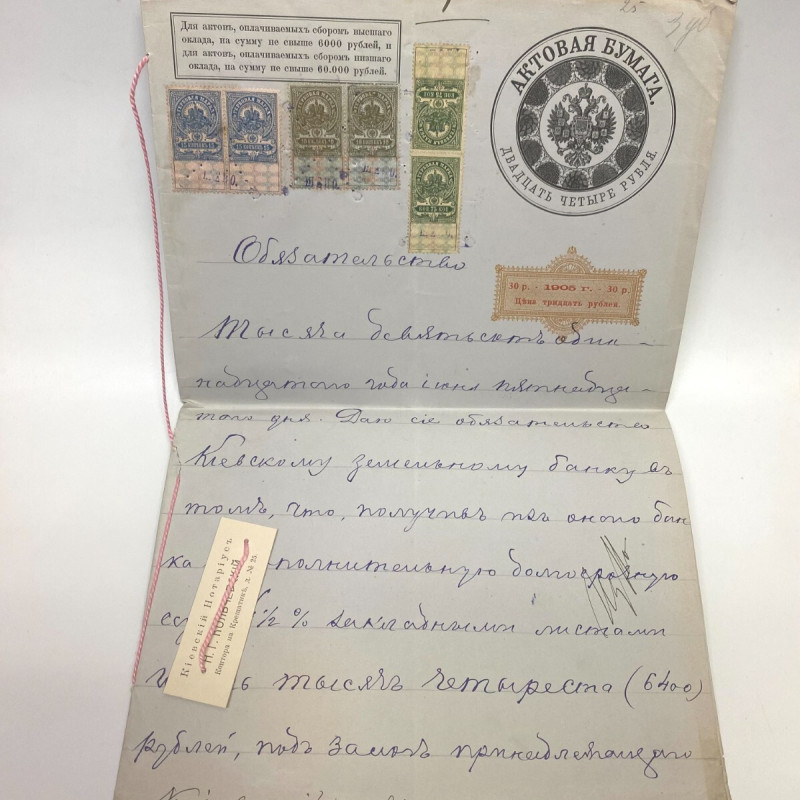 25
Для актовъ, оплачиваемыхъ сборомъ высшаго
оклада, на сумму не свыше 6000 рублей, и
для актовъ, оплачиваемыхъ сборомъ низшаго
оклада, на сумму не свыше 60.000 рублей.
АКТОВАЯ БУМАГА.
ДВАДЦАТЬ ЧЕТЫРЕ РУБЛЯ.
30 р. · 1905 г. · 30 р.
Цѣна тридцать рублей.
Обязательство
Тысяча девятьсотъ один-
надцатого года іюня пятнадца-
таго дня. Даю сіе обязательство
Кіевскому земельному банку въ
томъ, что, получивъ изъ оного бан
ка дополнительную долгосрочную
1/2 % закладными листами
тысячъ четыреста (6400)
рублей, подъ залогъ принадлежащаго
Кіевскій Нотаріусъ
Н.Г. КОЛЬЧЕВСКІЙ
Контора на Крещатикѣ, д. № 25.